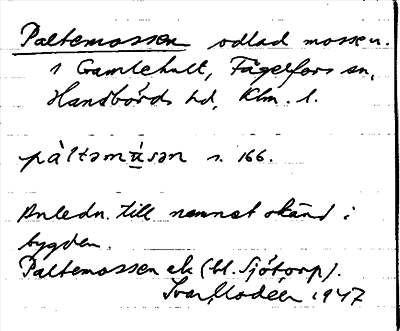 Paltemossen odlad mossen.
1 Gamlehult, Fågelfors sn,
Handbörds hd, Klm. l.
pàltəmùsən s. 166.
Anledn. till namnet okänd i
bygden.
Paltemossen ek (bl. Sjötorp).
Ivar Modéer 1947